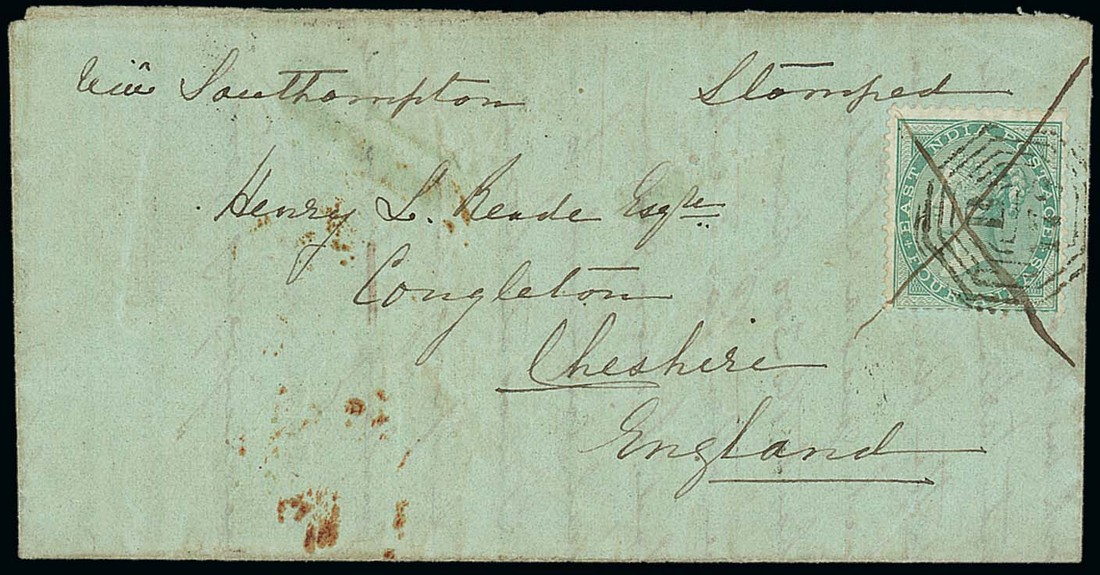 via Southampton Stamped
EAST INDIA POSTAGE
FOUR ANNAS
Henry L. Reade Esqre
Congleton
Cheshire
England